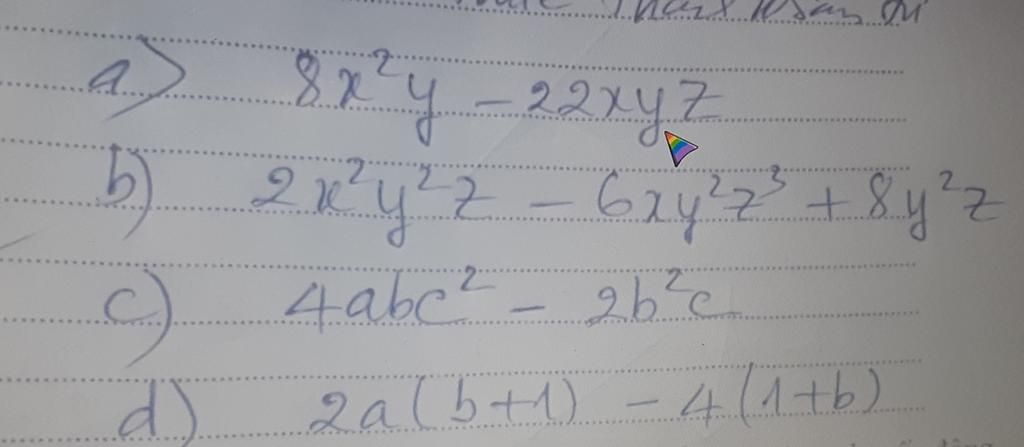 a) 8x²y - 22xyz
b) 2x²y²z - 6xy²z³ + 8y²z
c) 4abc² - 2b²c
d) 2a(b+1) - 4(1+b)